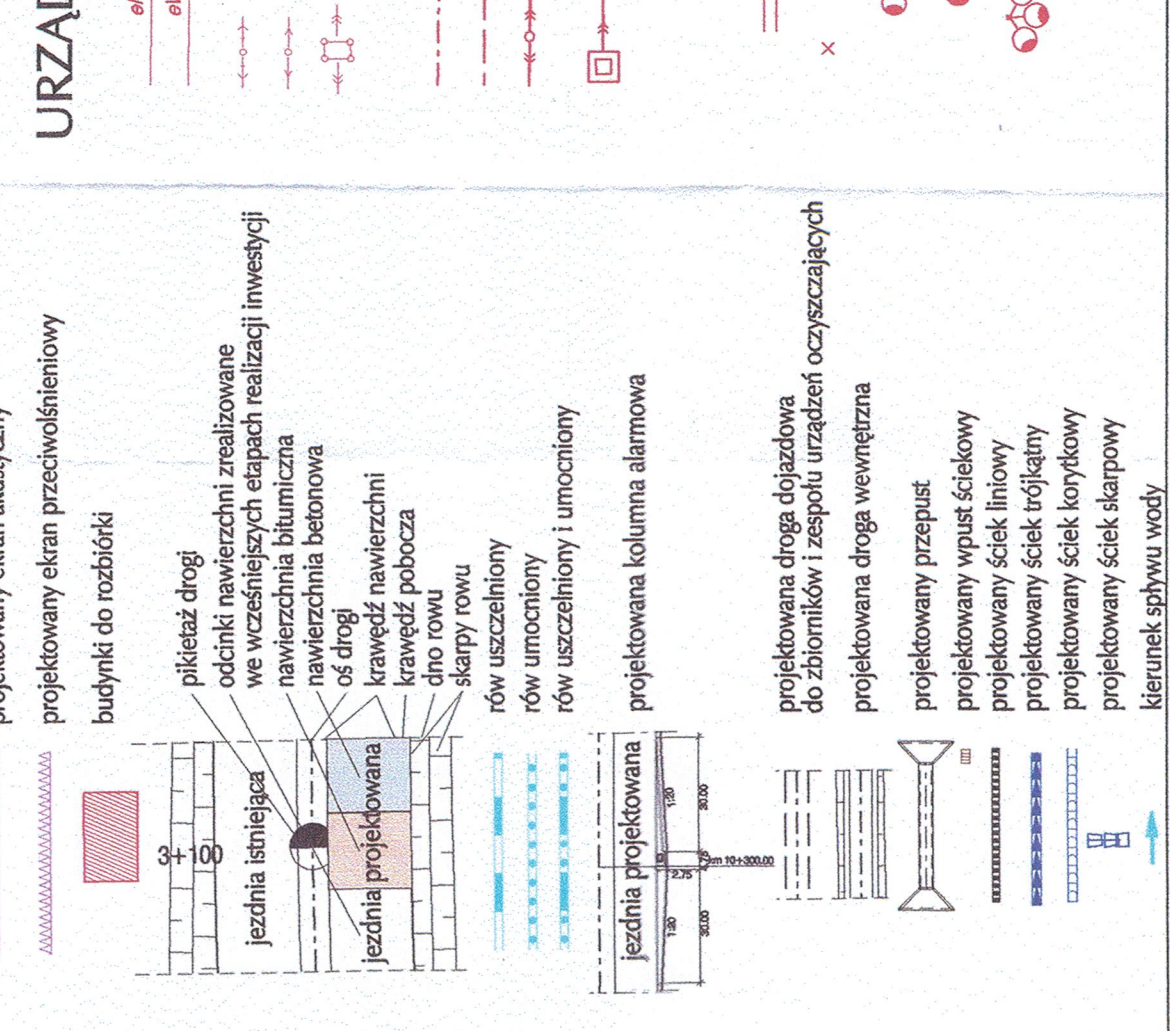 projektowany ekran akustyczny
projektowany ekran przeciwolśnieniowy
budynki do rozbiórki
3+100
jezdnia istniejąca
jezdnia projektowana
pikietaż drogi
odcinki nawierzchni zrealizowane
we wcześniejszych etapach realizacji inwestycji
nawierzchnia bitumiczna
nawierzchnia betonowa
oś drogi
krawędź nawierzchni
krawędź pobocza
dno rowu
skarpy rowu
rów uszczelniony
rów umocniony
rów uszczelniony i umocniony
jezdnia projektowana
1:20
1:20
2.75
30.00
30.00
km 10+300.00
projektowana kolumna alarmowa
projektowana droga dojazdowa
do zbiorników i zespołu urządzeń oczyszczających
projektowana droga wewnętrzna
projektowany przepust
projektowany wpust ściekowy
projektowany ściek liniowy
projektowany ściek trójkątny
projektowany ściek korytkowy
projektowany ściek skarpowy
kierunek spływu wody
URZĄD